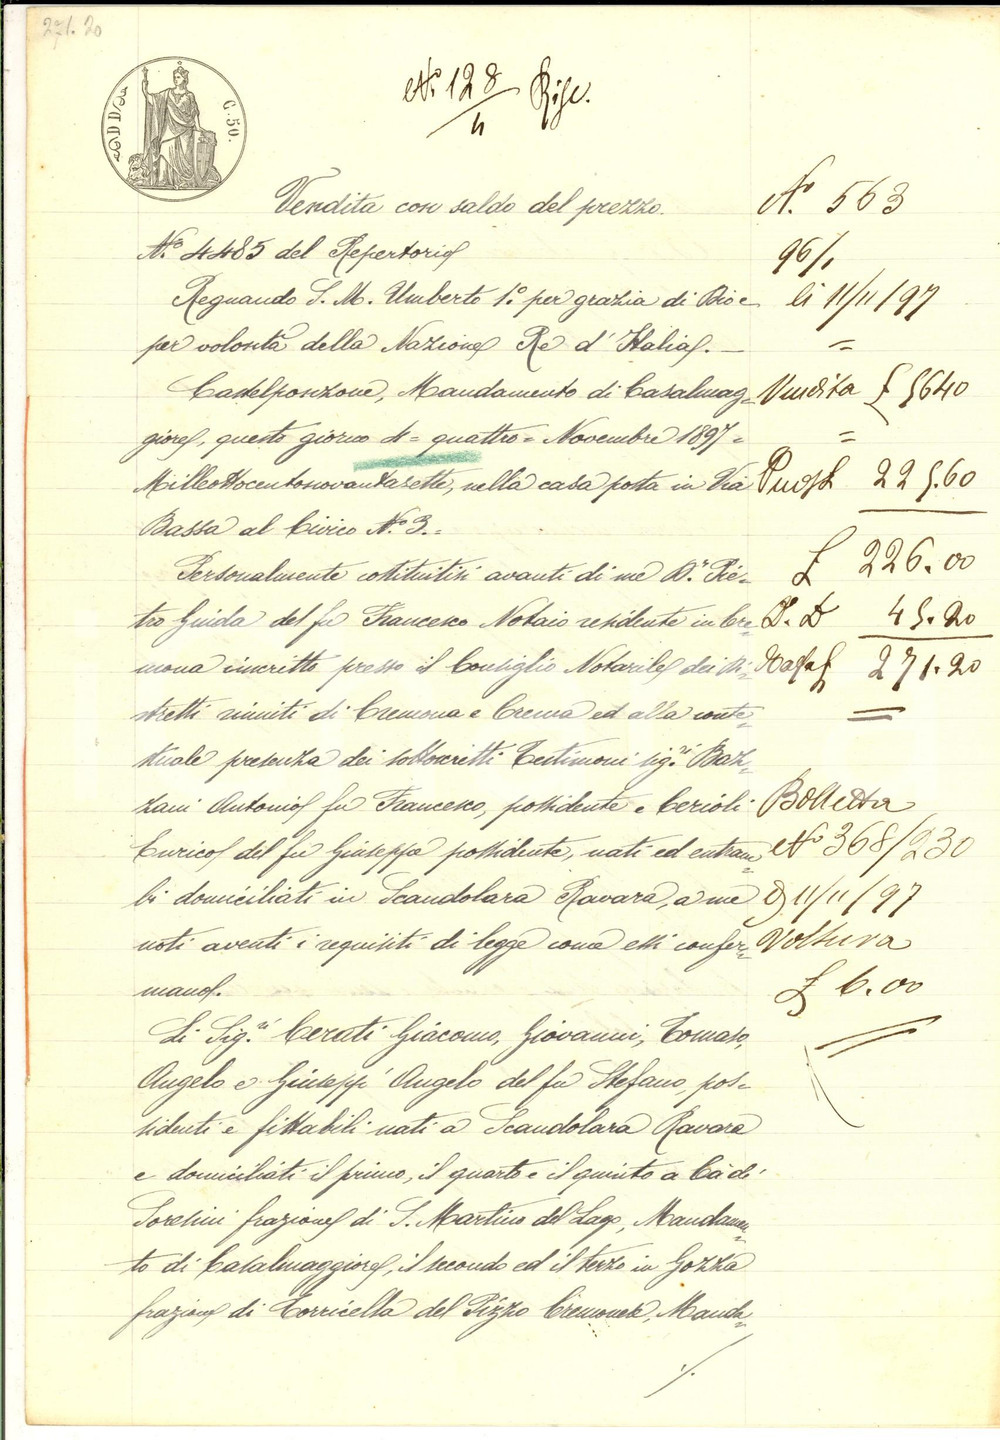 271.20
C. 50.
N.° 128/4 Rise.
Vendita con saldo del prezzo.
N.° 4485 del Repertorio
Regnando S. M. Umberto 1.° per grazia di Dio e
per volontà della Nazione Re d'Italia. —
Castelponzone, Mandamento di Casalmag=
giore, questo giorno 4 = quattro = Novembre 1897 =
Milleottocentonovantasette, nella casa posta in Via
Bassa al Civico N.° 3. =
Personalmente costituitisi avanti di me D.r Pie=
tro Guida del fu Francesco Notaio residente in Cre=
mona inscritto presso il Consiglio Notarile dei Di=
stretti riuniti di Cremona e Crema ed alla conte=
stuale presenza dei sottoscritti Testimoni sig.ri Baz=
zani Antonio fu Francesco, possidente e Cerioli
Enrico del fu Giuseppe possidente, nati ed entram=
bi domiciliati in Scandolara Ravara, a me
noti aventi i requisiti di legge come essi confer=
mano.
Li Sig.ri Cerati Giacomo, Giovanni, Tomaso,
Angelo e Giuseppe Angelo del fu Stefano, pos=
sidenti e fittabili nati a Scandolara Ravara
e domiciliati il primo, il quarto e il quinto a Cà de'
Soresini frazione di S. Martino del Lago, Mandamen=
to di Casalmaggiore, il secondo ed il terzo in Gozza
frazione di Torricella del Pizzo Cremonese, Manda=
./.
N.° 563
96/1
li 11/11/97
=
Vendita £ 5640
=
225.60
£ 226.00
D. D 45.20
271.20
Bolletta
N° 368/230
11/11/97
Voltura
£ 6.00